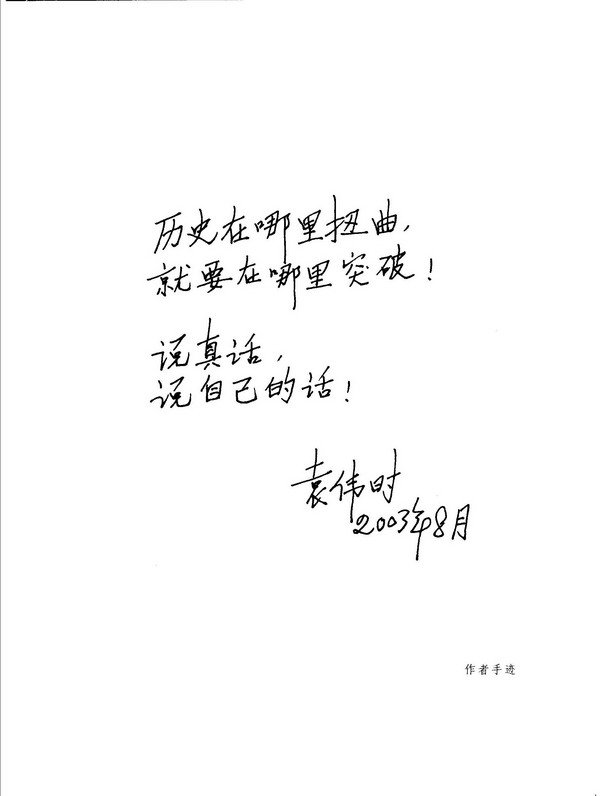 历史在哪里扭曲,
就要在哪里突破!
说真话,
说自己的话!
袁伟时
2003年8月
作者手迹